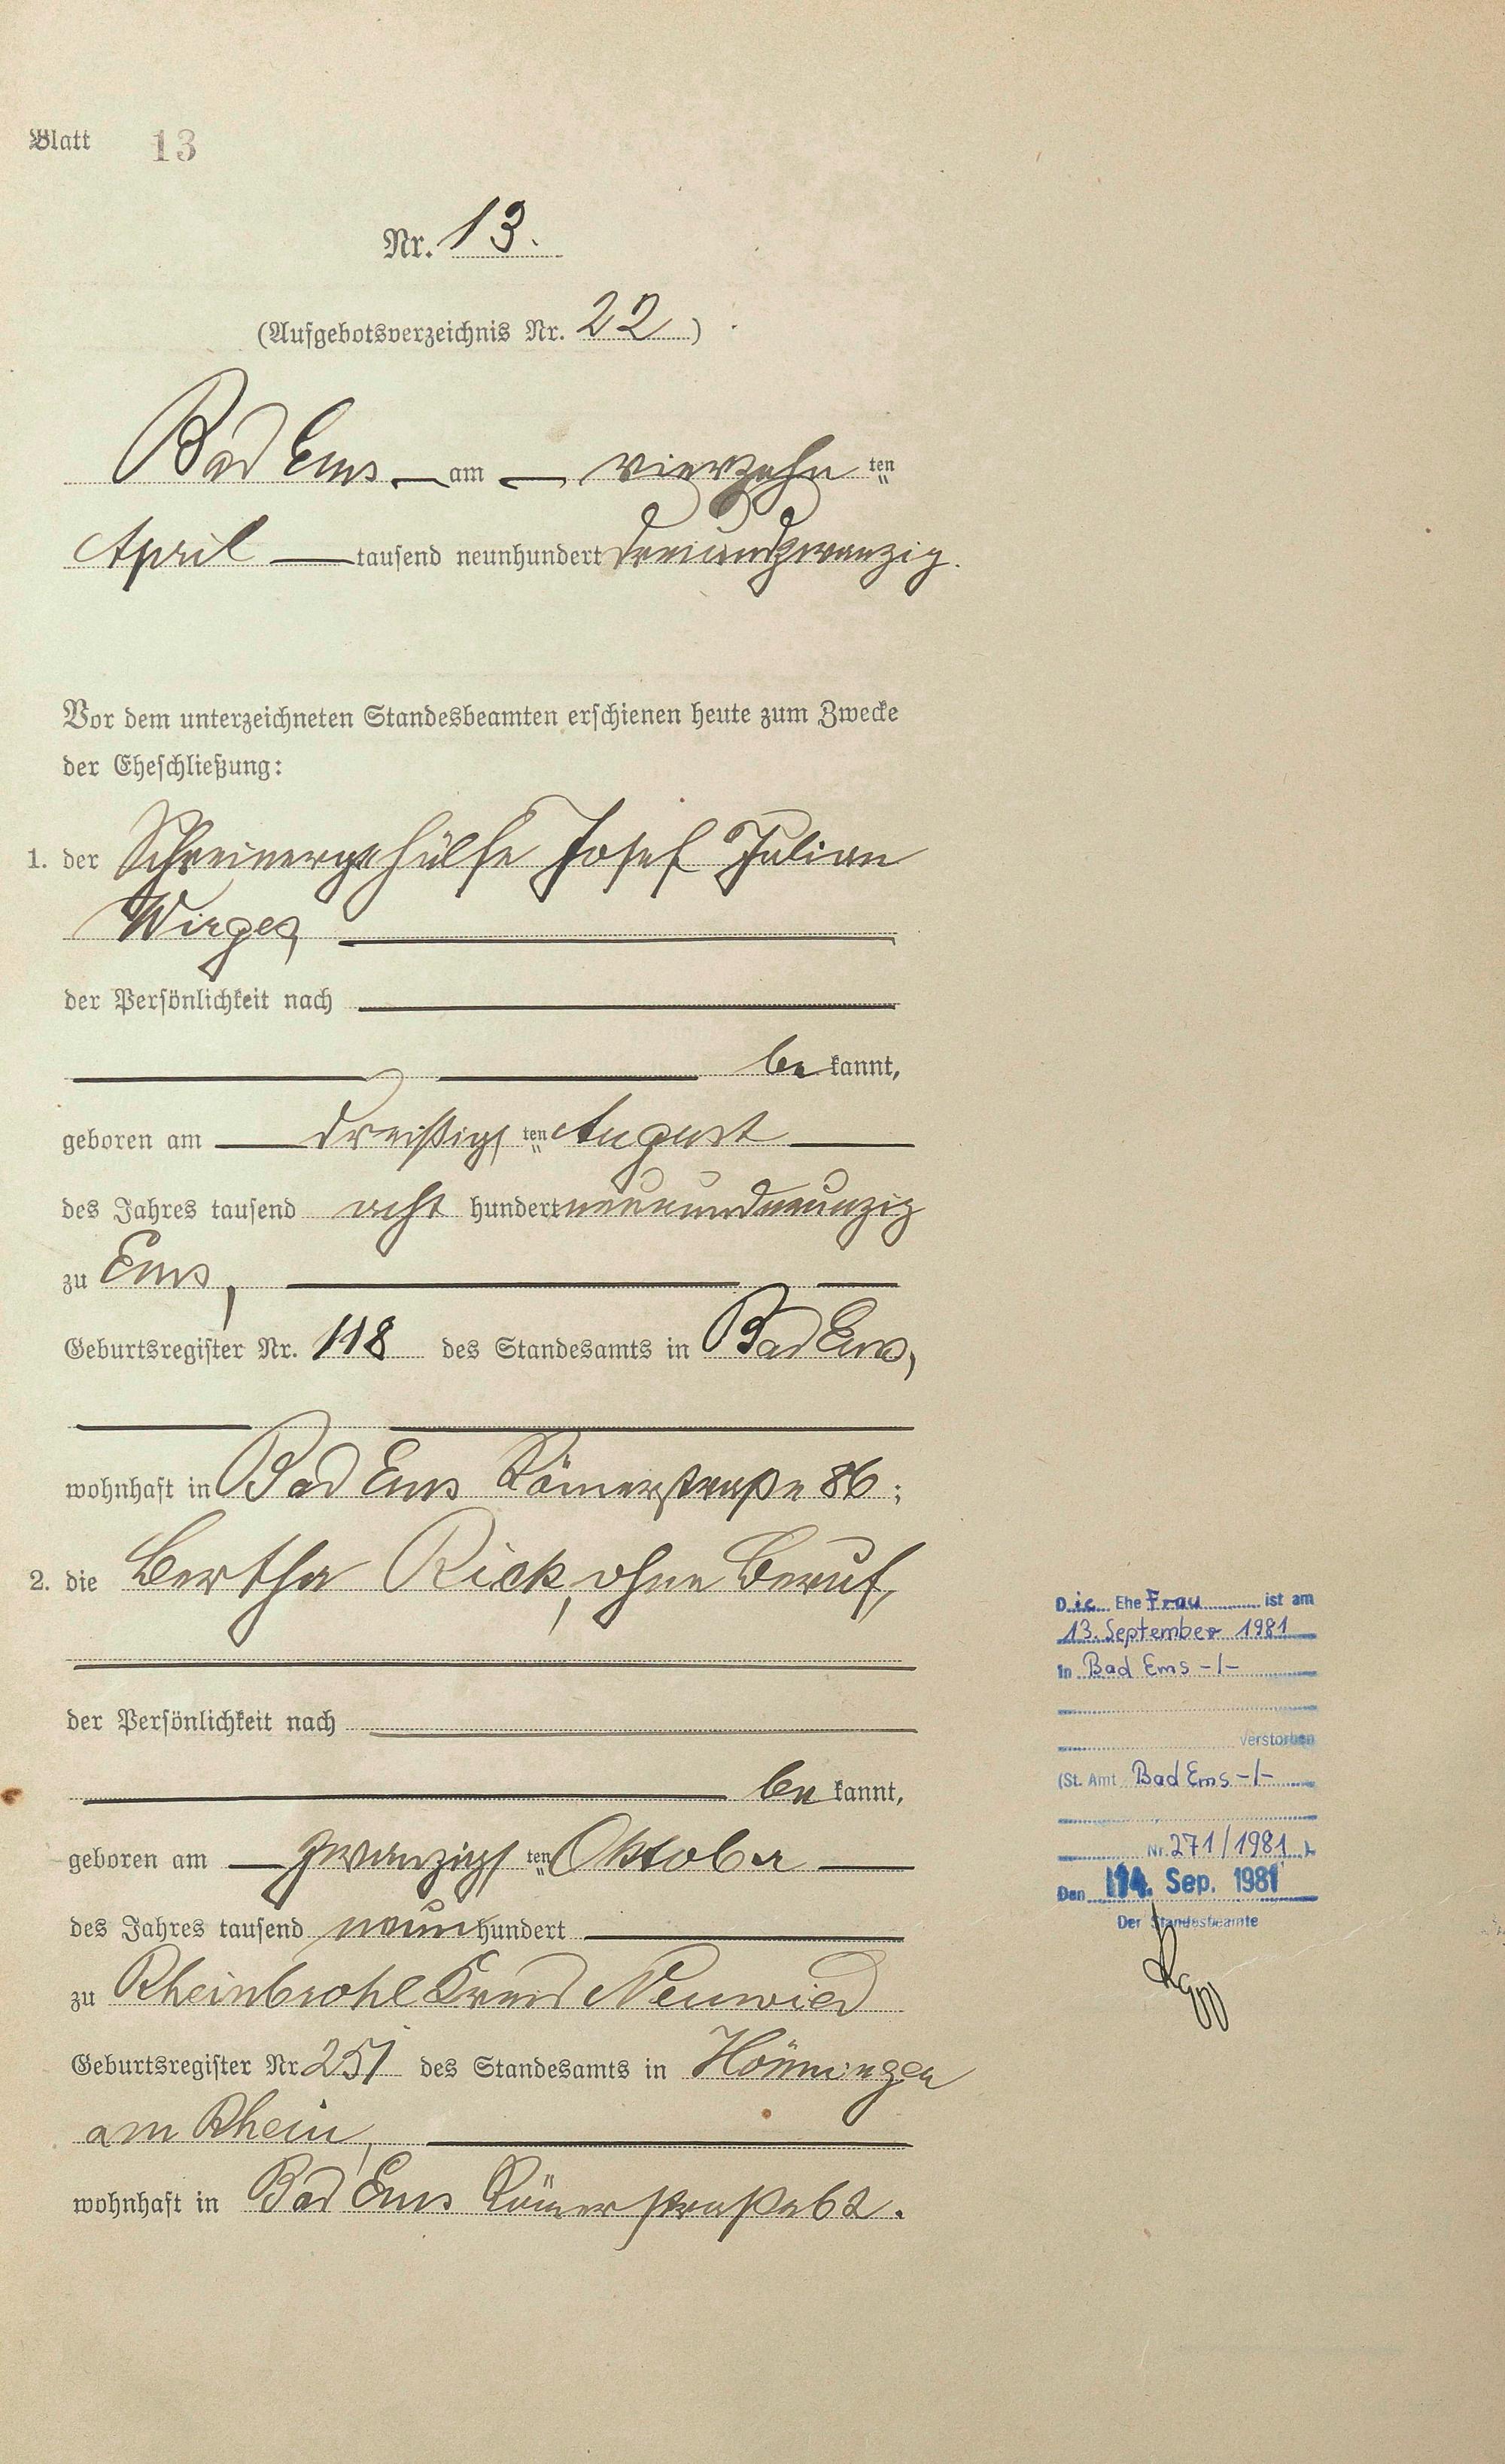 Blatt 13
Nr. 13.
(Aufgebotsverzeichnis Nr. 22)
Bad Ems am vierzehn ten
April tausend neunhundert dreiundzwanzig.
Vor dem unterzeichneten Standesbeamten erschienen heute zum Zwecke
der Eheschließung:
1. der Schreinergehülfe Josef Julian
Wirges,
der Persönlichkeit nach
be kannt,
geboren am dreißigs ten August
des Jahres tausend acht hundert neunundneunzig
zu Ems,
Geburtsregister Nr. 118 des Standesamts in Bad Ems,
wohnhaft in Bad Ems Römerstraße 86;
2. die Bertha Rick, ohne Beruf,
der Persönlichkeit nach
be kannt,
geboren am zwanzigs ten Oktober
des Jahres tausend neun hundert
zu Rheinbrohl Kreis Neuwied
Geburtsregister Nr. 251 des Standesamts in Hönningen
am Rhein,
wohnhaft in Bad Ems Römerstraße 62.
Die Ehe Frau ist am
13. September 1981
in Bad Ems -/-
verstorben
(St. Amt Bad Ems -/-
Nr. 271/1981 )
Den 14. Sep. 1981
Der Standesbeamte